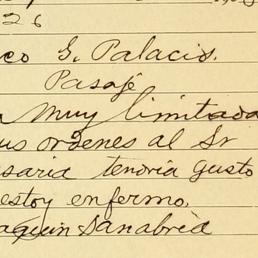 26
co G. Palacio.
Pasaje
muy limitada
us ordenes al Sr
saria tendria gusto
estoy enfermo,
aquin Sanabria